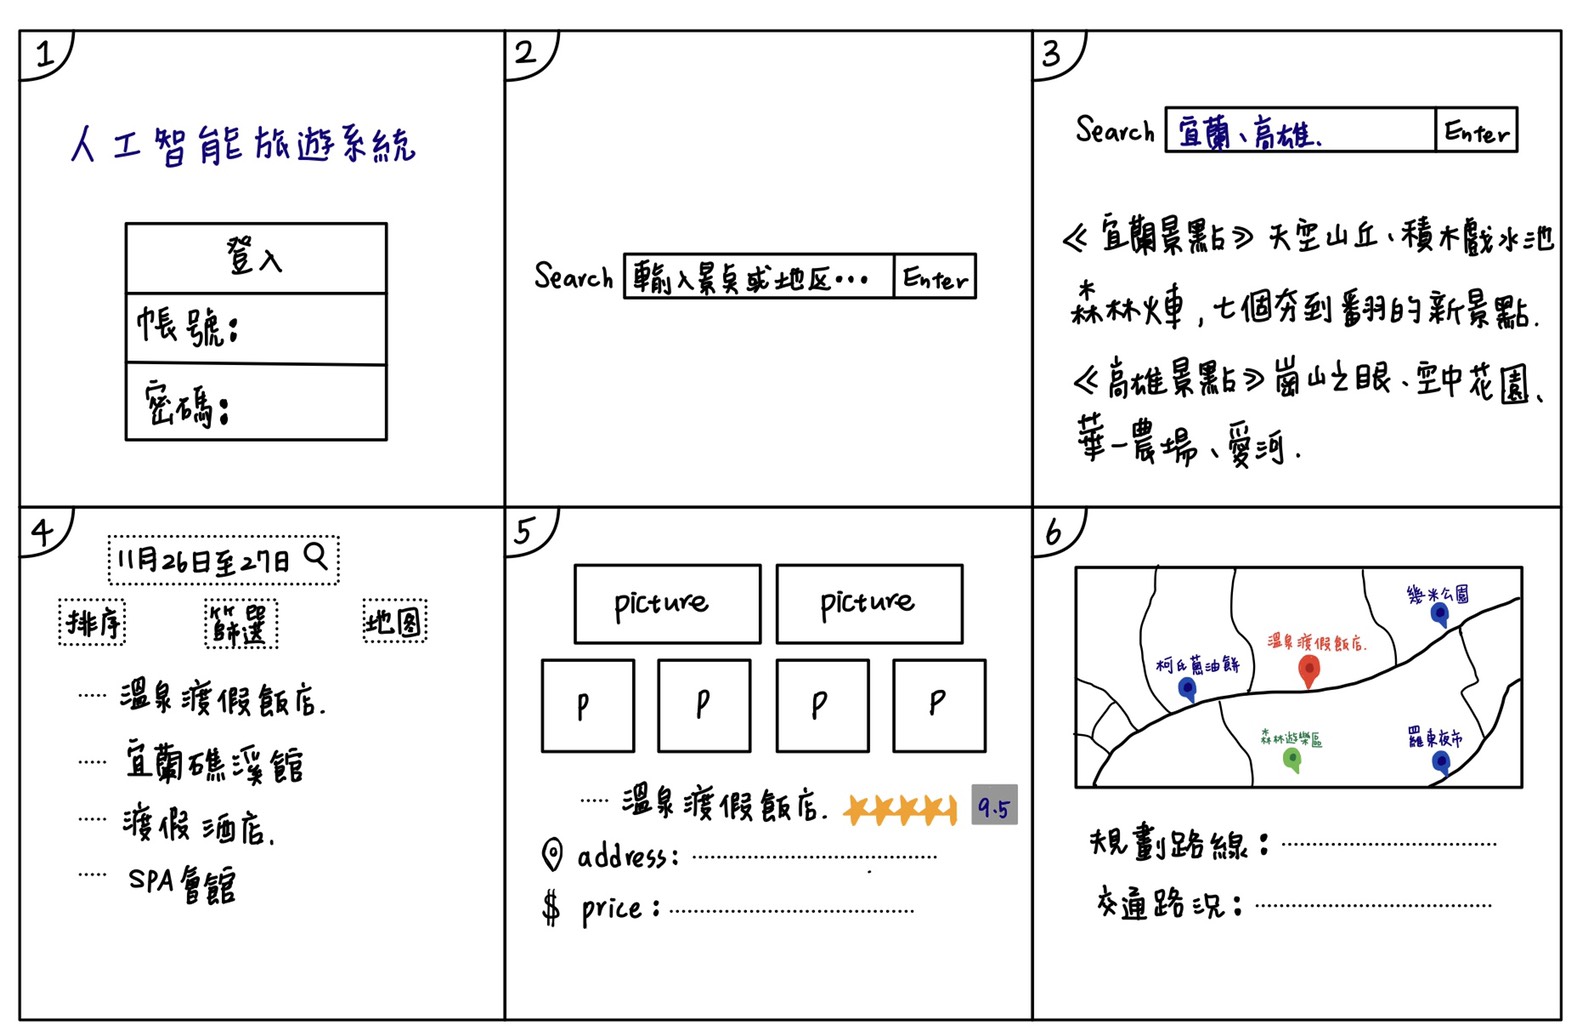 1
人工智能旅遊系統
登入
帳號:
密碼:
2
Search 輸入景点或地区... Enter
3
Search 宜蘭、高雄. Enter
《宜蘭景點》天空山丘、積木戲水池
森林火車,七個夯到翻的新景點.
《高雄景點》崗山之眼、空中花園、
華一農場、愛河.
4
11月26日至27日
排序 篩選 地图
..... 溫泉渡假飯店.
..... 宜蘭礁溪館
..... 渡假酒店.
..... SPA會館
5
picture picture
P P P P
..... 溫泉渡假飯店. 9.5
address: ..............................
$ price: ..............................
6
幾米公園
溫泉渡假飯店.
柯氏蔥油餅
森林遊樂區
羅東夜市
規劃路線: ..............................
交通路況: ..............................